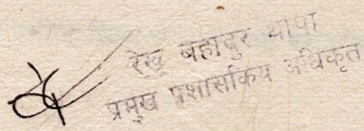 रेखू बहादुर थापा
प्रमुख प्रशासकिय अधिकृत